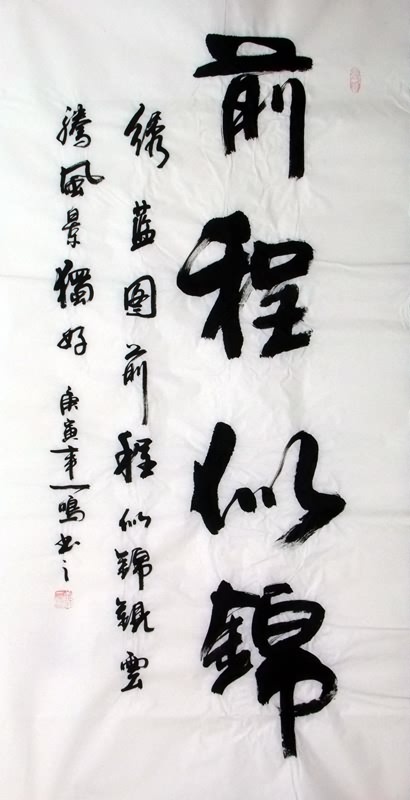 前程似錦
绣蓝图前程似錦觀雲
騰風景獨好 庚寅年一鳴书之